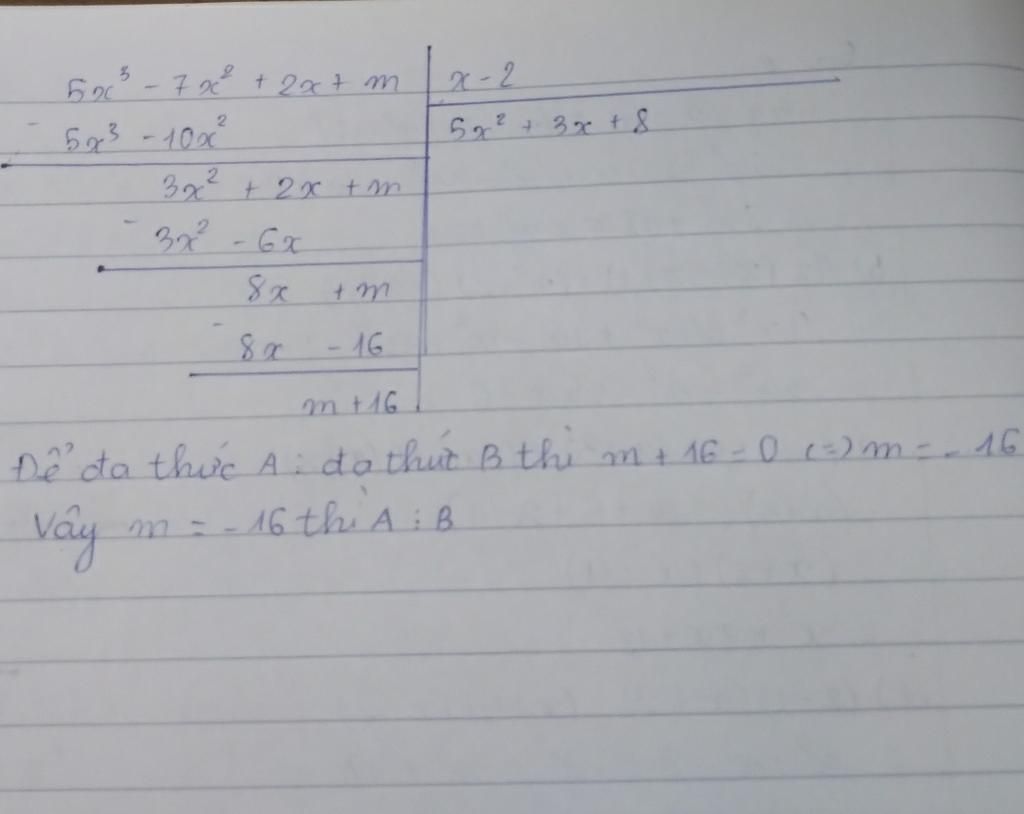 5x³ - 7x² + 2x + m | x - 2
- 5x³ - 10x² | 5x² + 3x + 8
3x² + 2x + m
- 3x² - 6x
8x + m
- 8x - 16
m + 16
Để đa thức A ⋮ đa thức B thì m + 16 = 0 (=) m = - 16
Vậy m = - 16 thì A ⋮ B